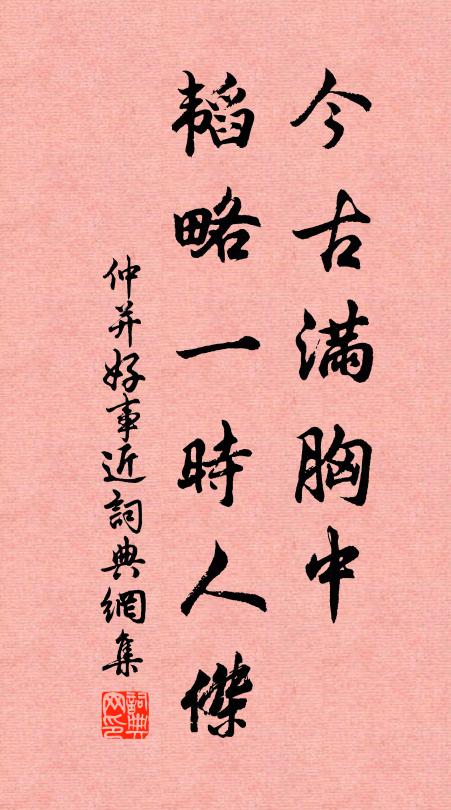 今古滿胸中
韜略一時人傑
仲并好事近詞典網集
詞典网印